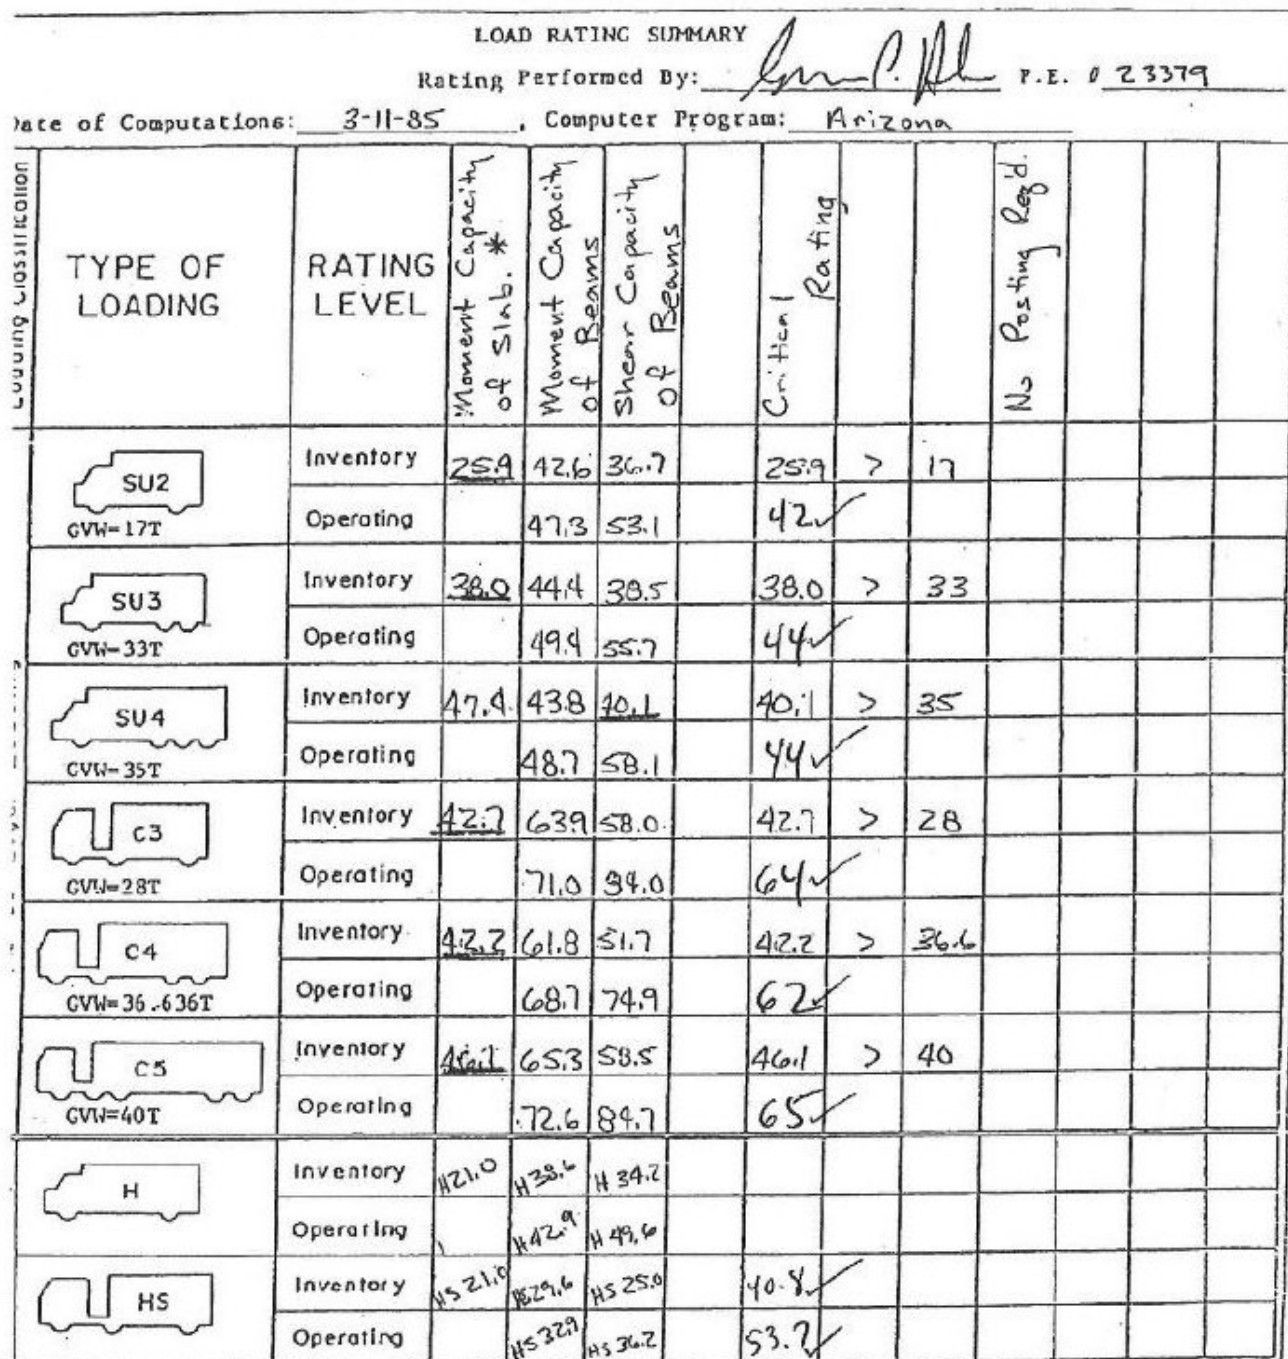 LOAD RATING SUMMARY
Rating Performed By: P.E. # 23379
Date of Computations: 3-11-85 , Computer Program: Arizona
Loading Classification
TYPE OF LOADING
RATING LEVEL
Moment Capacity of Slab. *
Moment Capacity of Beams
Shear Capacity of Beams
Critical Rating
No Posting Req'd.
SU2 Inventory 25.9 42.6 36.7 25.9 > 17
GVW=17T Operating 47.3 53.1 42 ✓
SU3 Inventory 38.0 44.4 38.5 38.0 > 33
GVW=33T Operating 49.4 55.7 44 ✓
SU4 Inventory 47.4 43.8 40.1 40.1 > 35
GVW=35T Operating 48.7 58.1 44 ✓
C3 Inventory 42.7 63.9 58.0 42.7 > 28
GVW=28T Operating 71.0 84.0 64 ✓
C4 Inventory 42.2 61.8 51.7 42.2 > 36.6
GVW=36.636T Operating 68.7 74.9 62 ✓
C5 Inventory 46.1 65.3 58.5 46.1 > 40
GVW=40T Operating 72.6 84.7 65 ✓
H Inventory H21.0 H38.6 H 34.2
Operating H42.9 H 49.6
HS Inventory HS 21.0 HS29.6 HS 25.0 40.8 ✓
Operating HS 32.9 HS 36.2 53.2 ✓